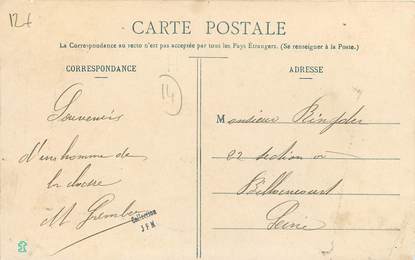 12f
CARTE POSTALE
La Correspondance au recto n'est pas acceptée par tous les Pays Etrangers. (Se renseigner à la Poste.)
CORRESPONDANCE
ADRESSE
14
Souvenirs
d'un homme de
la classe
M
Monsieur
22 section à
Billancourt
Seine
Collection
J F M